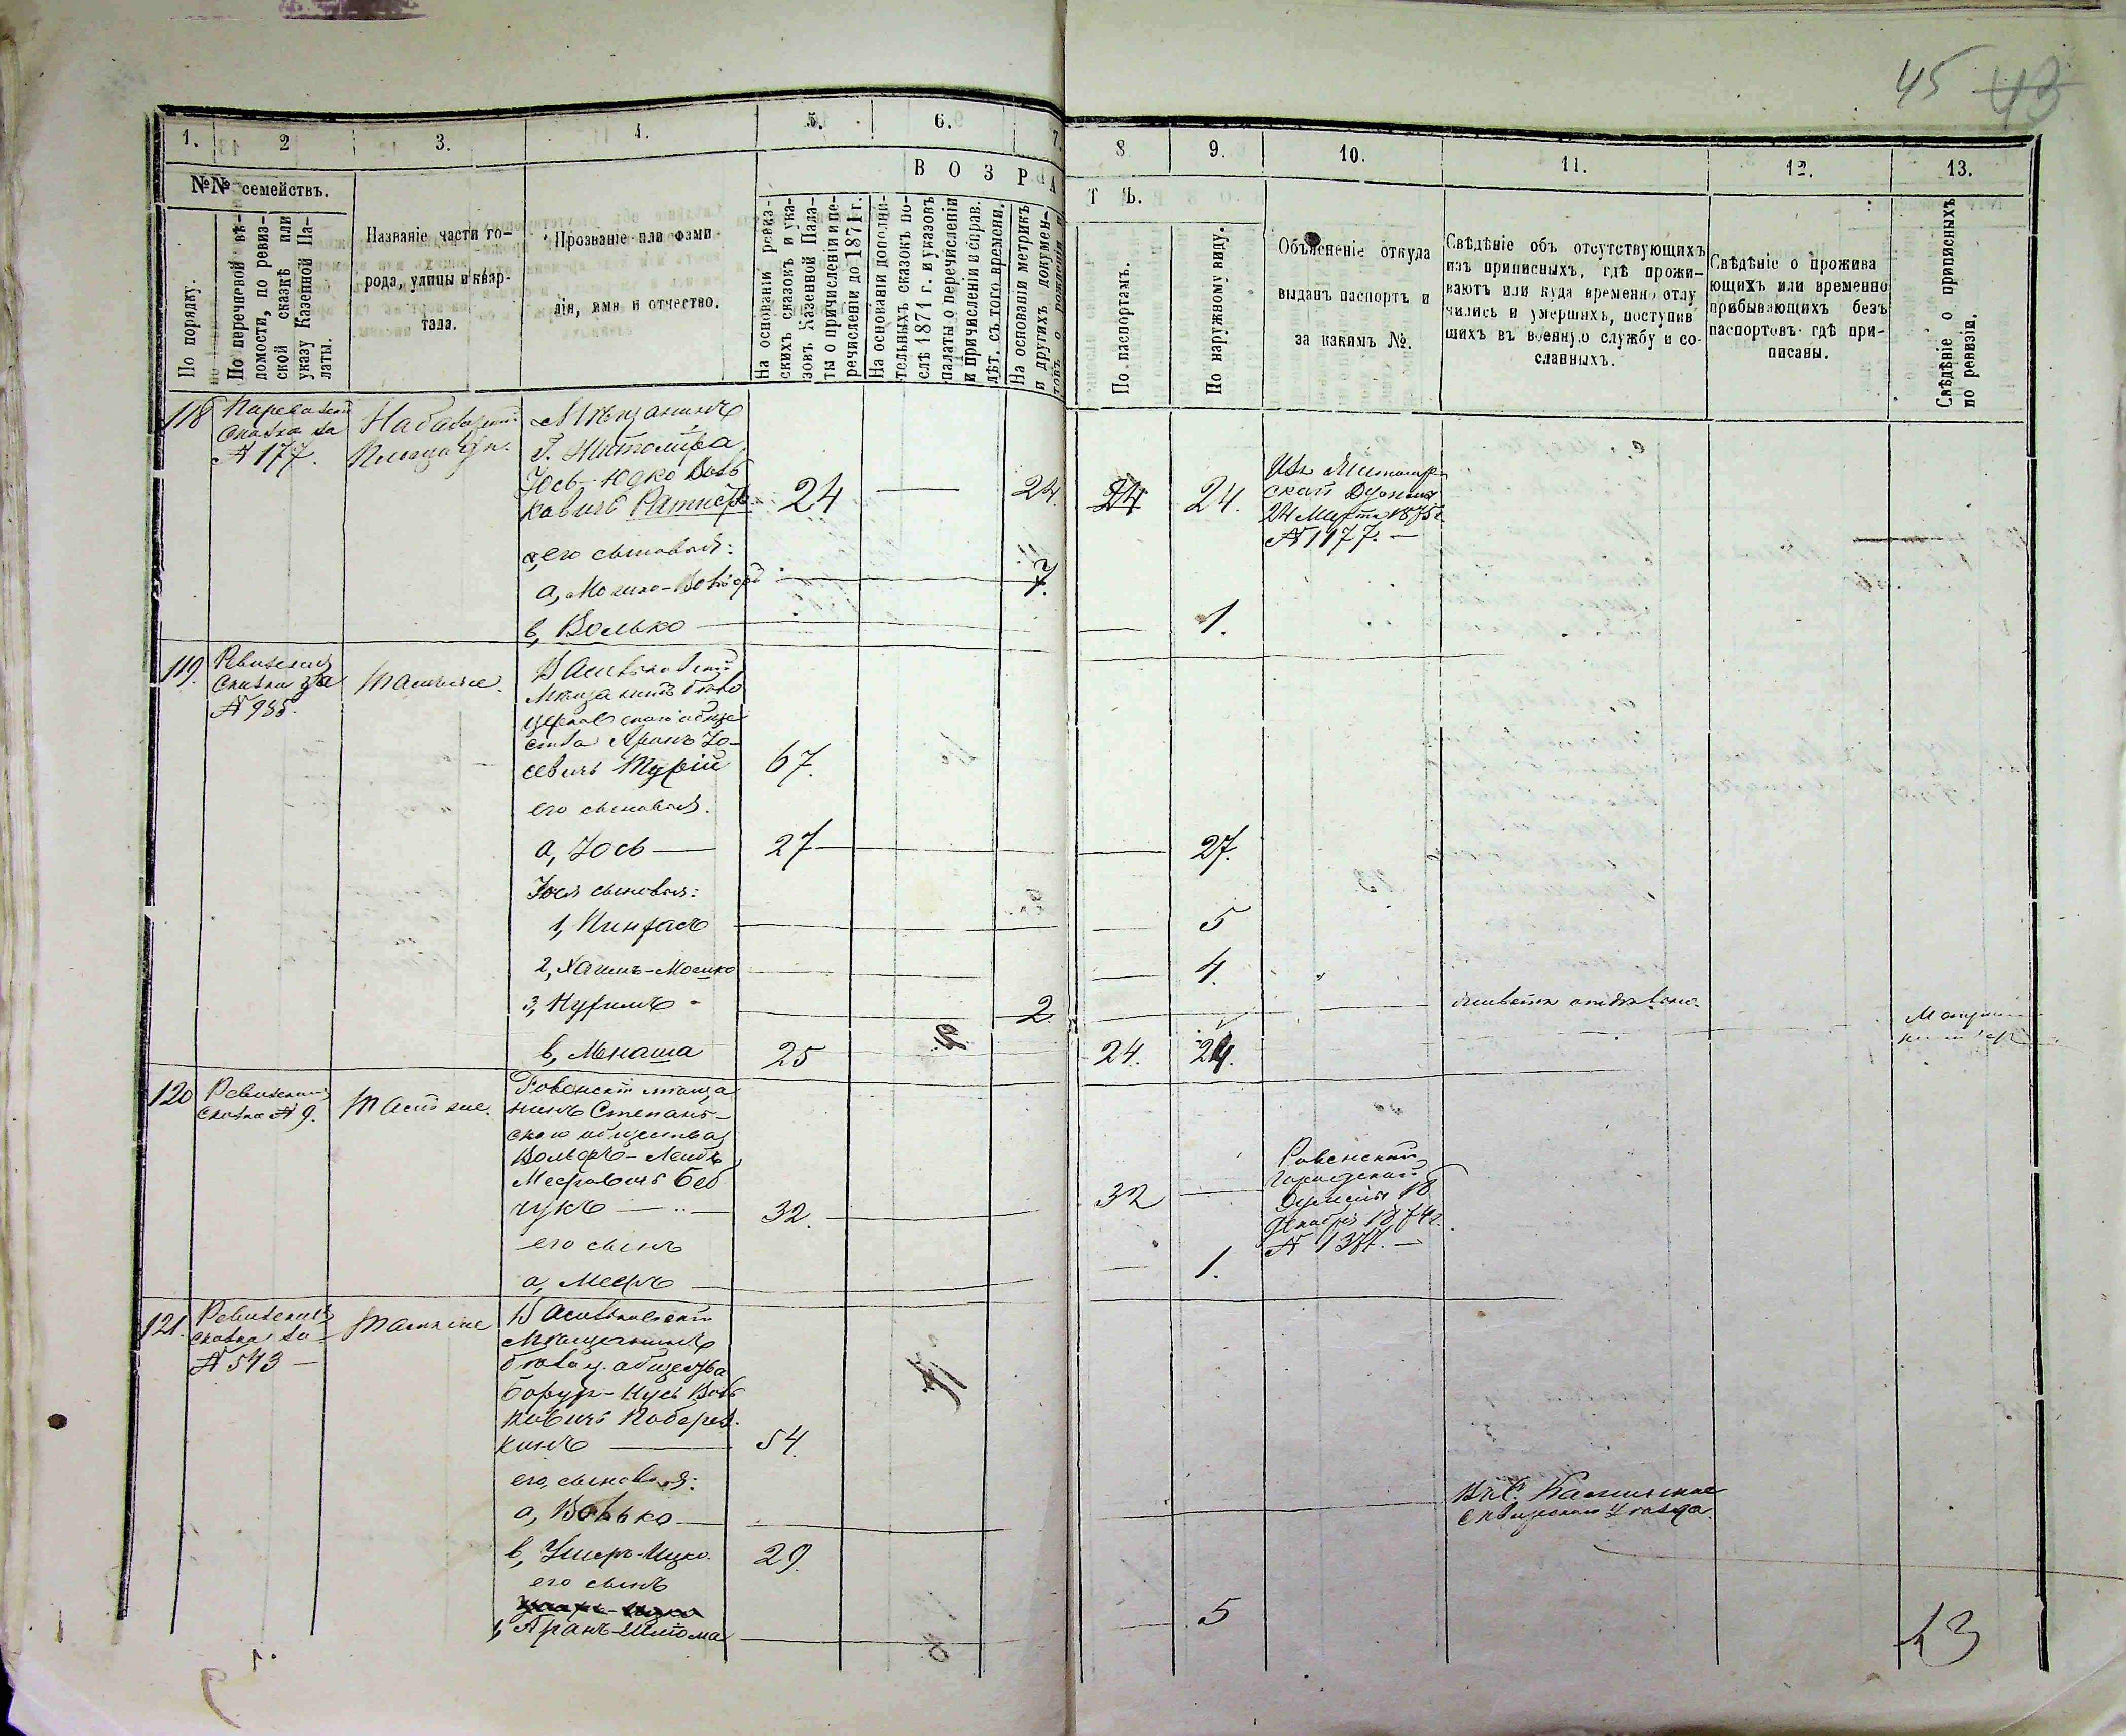 45 43
1. 2 3. 4. 5. 6. 7. 8 9. 10. 11. 12. 13.
№№ семействъ.
В О З Р А Т Ъ.
По порядку.
По перечневой вѣ-
домости, по ревиз-
ской сказкѣ или
указу Казенной Па-
латы.
Названіе части го-
рода, улицы и квар-
тала.
Прозваніе или фами
лія, имя и отчество.
На основаніи ревиз-
скихъ сказокъ и ука-
зовъ Казенной Пала-
ты о причисленіи и пе-
речисленіи до 1871 г.
На основаніи дополни-
тельныхъ сказокъ по-
слѣ 1871 г. и указовъ
палаты о перечисленіи
и причисленіи и справ.
лѣт. съ того времени.
На основаніи метрикъ
и другихъ докумен-
товъ о рожденіи и
По паспортамъ.
По наружному виду.
Объясненіе откуда
выданъ паспортъ и
за какимъ №.
Свѣдѣніе объ отсутствующихъ
изъ приписныхъ, гдѣ прожи-
ваютъ или куда временно отлу
чились и умершихъ, поступив
шихъ въ военную службу и со-
сланныхъ.
Свѣдѣніе о прожива
ющихъ или временно
прибывающихъ безъ
паспортовъ гдѣ при-
писаны.
Свѣдѣніе о приписныхъ
по ревизіи.
118
сказка за
№ 177.
Мѣщанинъ
г. Житомира
Іось-Юдко Воль
ковичъ Ратнеръ
24 — 24. 24 24.
Изъ Житомир
ской Думы
24 Марта 1875 г.
№ 1177. —
его сыновья:
а, Мошко- 7.
в, Волько — 1.
119.
Ревизская
сказка за
№ 935.
Тамъ же.
Васильковскій
Мѣщанинъ Бѣло
церковскаго обще
ства Аронъ Іо-
севичъ Турій 67.
его сыновья.
а, Іось — 27 27.
Іося сыновья:
1, Пинхасъ 5
2, Хаимъ-Мошко 4.
3, Нухимъ 2.
в, Менаша 25 24. 24.
120
Ревизская
сказка № 9.
Тамъ же.
Ровенскій мѣща
нинъ Степань-
скаго общества
Вольфъ-Лейбъ
Мееровичъ Боб
чукъ — 32. 32
Ровенской
Городской
Думы 18
Декабря 1874 г.
№ 1377. —
его сынъ
а, Мееръ 1.
121.
Ревизская
сказка за
№ 543 —
Тамъ же
Васильковскій
Мѣщанинъ
Бѣлоц. общества
Борух-Нусь Воль
ковичъ Поберез.
кинъ — 54.
его сыновья:
а, Волько —
Сквирскаго Уѣзда.
в, Ушеръ-Ицко. 29.
его сынъ
1, Аранъ-Шлома 5
43